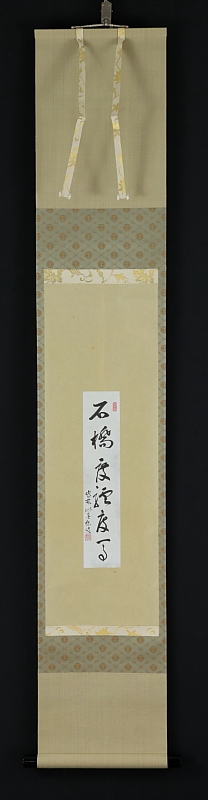 石橋度驢度馬